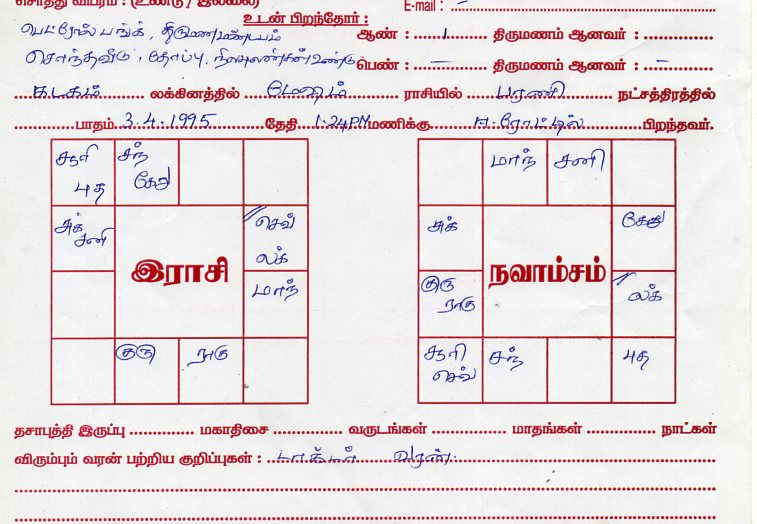 சொத்து விபரம் : (உண்டு / இல்லை) E-mail :
உடன் பிறந்தோர் :
பெட்ரோல் பங்க், திருமண மண்டபம் ஆண் : 1 திருமணம் ஆனவர் :
சொந்தவீடு, தோப்பு, நிலபுலன்கள் உண்டு பெண் : — திருமணம் ஆனவர் : –
கடகம் லக்கினத்தில் மேஷம் ராசியில் பரணி நட்சத்திரத்தில்
பாதம் 3.4.1995 தேதி 1:24PM மணிக்கு ஈரோட்டில் பிறந்தவர்.
சூரி சந் மாந் சனி
புத கேது
சுக் சனி செவ் லக் சுக் கேது
இராசி நவாம்சம்
மாந் குரு ராகு லக்
குரு ராகு சூரி செவ் சந் புத
தசாபுத்தி இருப்பு மகாதிசை வருடங்கள் மாதங்கள் நாட்கள்
விரும்பும் வரன் பற்றிய குறிப்புகள் : டாக்டர் வரன்